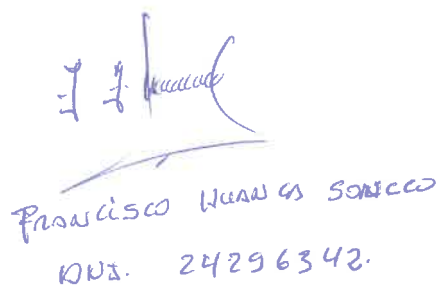 FRANCISCO HUANCA SONCCO
DNI. 24296342.